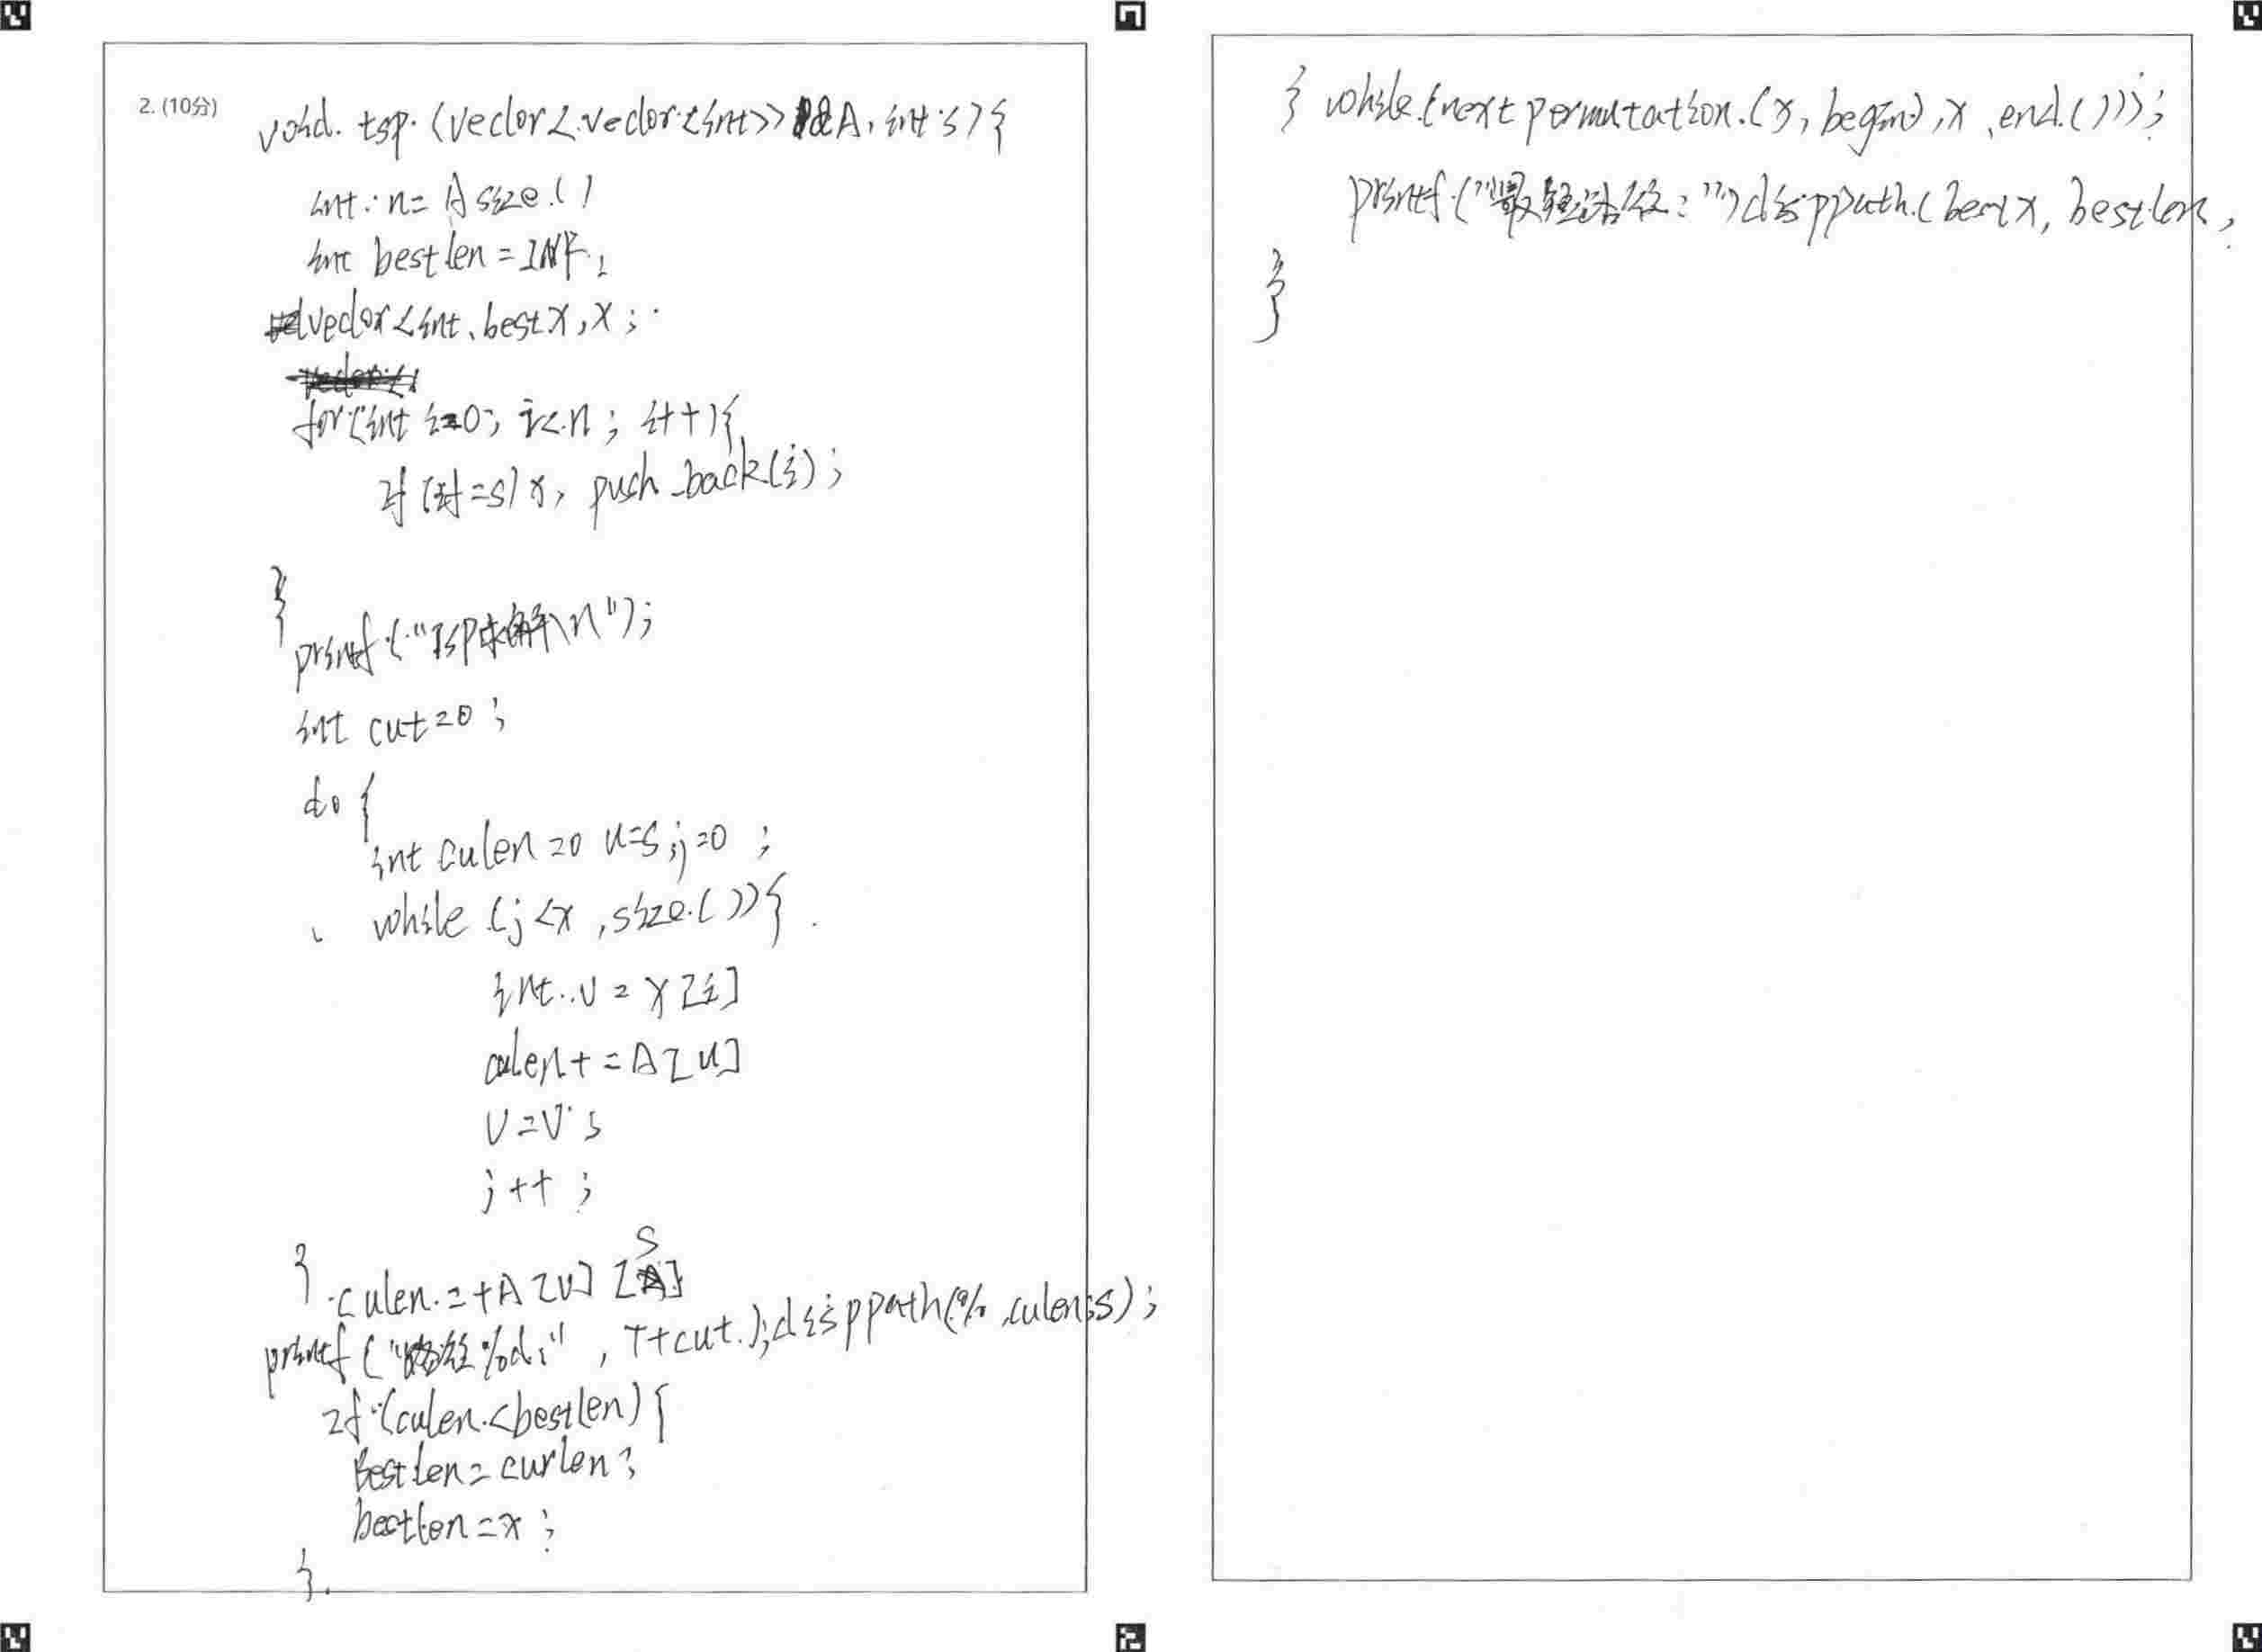 2. (10分)
void tsp (vector<vector<int>> &A, int s) {
int n= A size ( )
int bestlen = INF;
vector<int, bestx, x;
for (int i=0; i<n; i++){
if (i!=s) x, push_back(i);
}
printf ("TSP求解\n");
int cut=0;
do {
int culen=0 u=s; j=0 ;
while (j<x ,size.( )){
int v = x[i]
culen+=A[u]
v=v;
j++ ;
} culen.=+A[v] [s]
printf ("路径%d:" , ++cut.);disppath(% ,culen;s);
if (culen.<bestlen){
Bestlen=curlen;
bestlen=x;
}.
} while (next permutation.(x, begin),x ,end.( )));
printf ("最短路径: ")disppath.(bestx, bestlen,
}